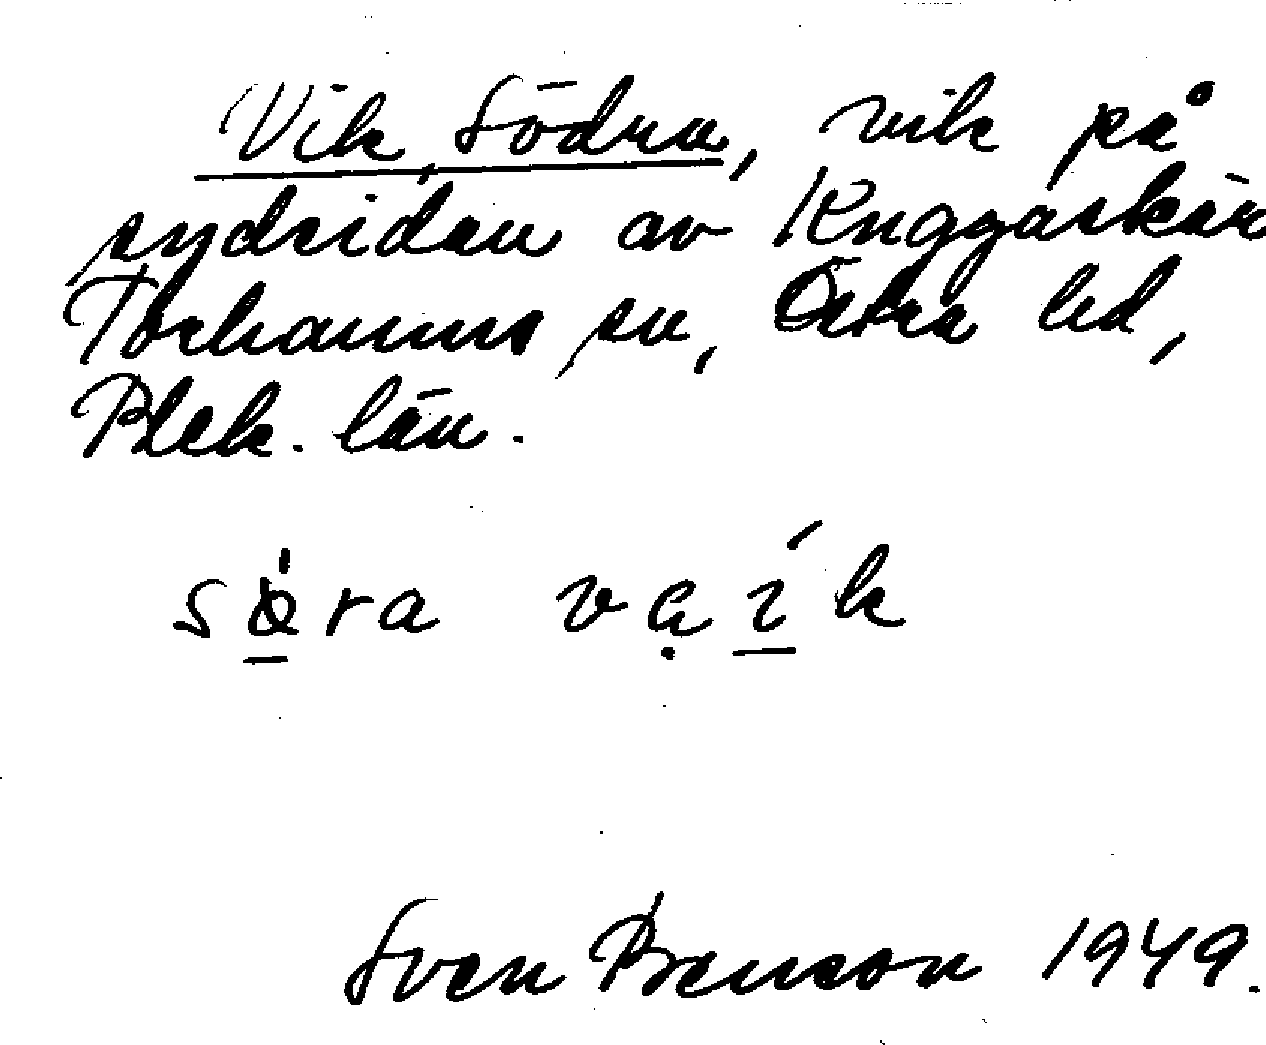 Vik, Södra, vik på
sydsidan av Ruggaskär
Torhamns sn, Östra hd,
Blek. län.
sǿ̱ra vạí̱k
Sven Benson 1949.